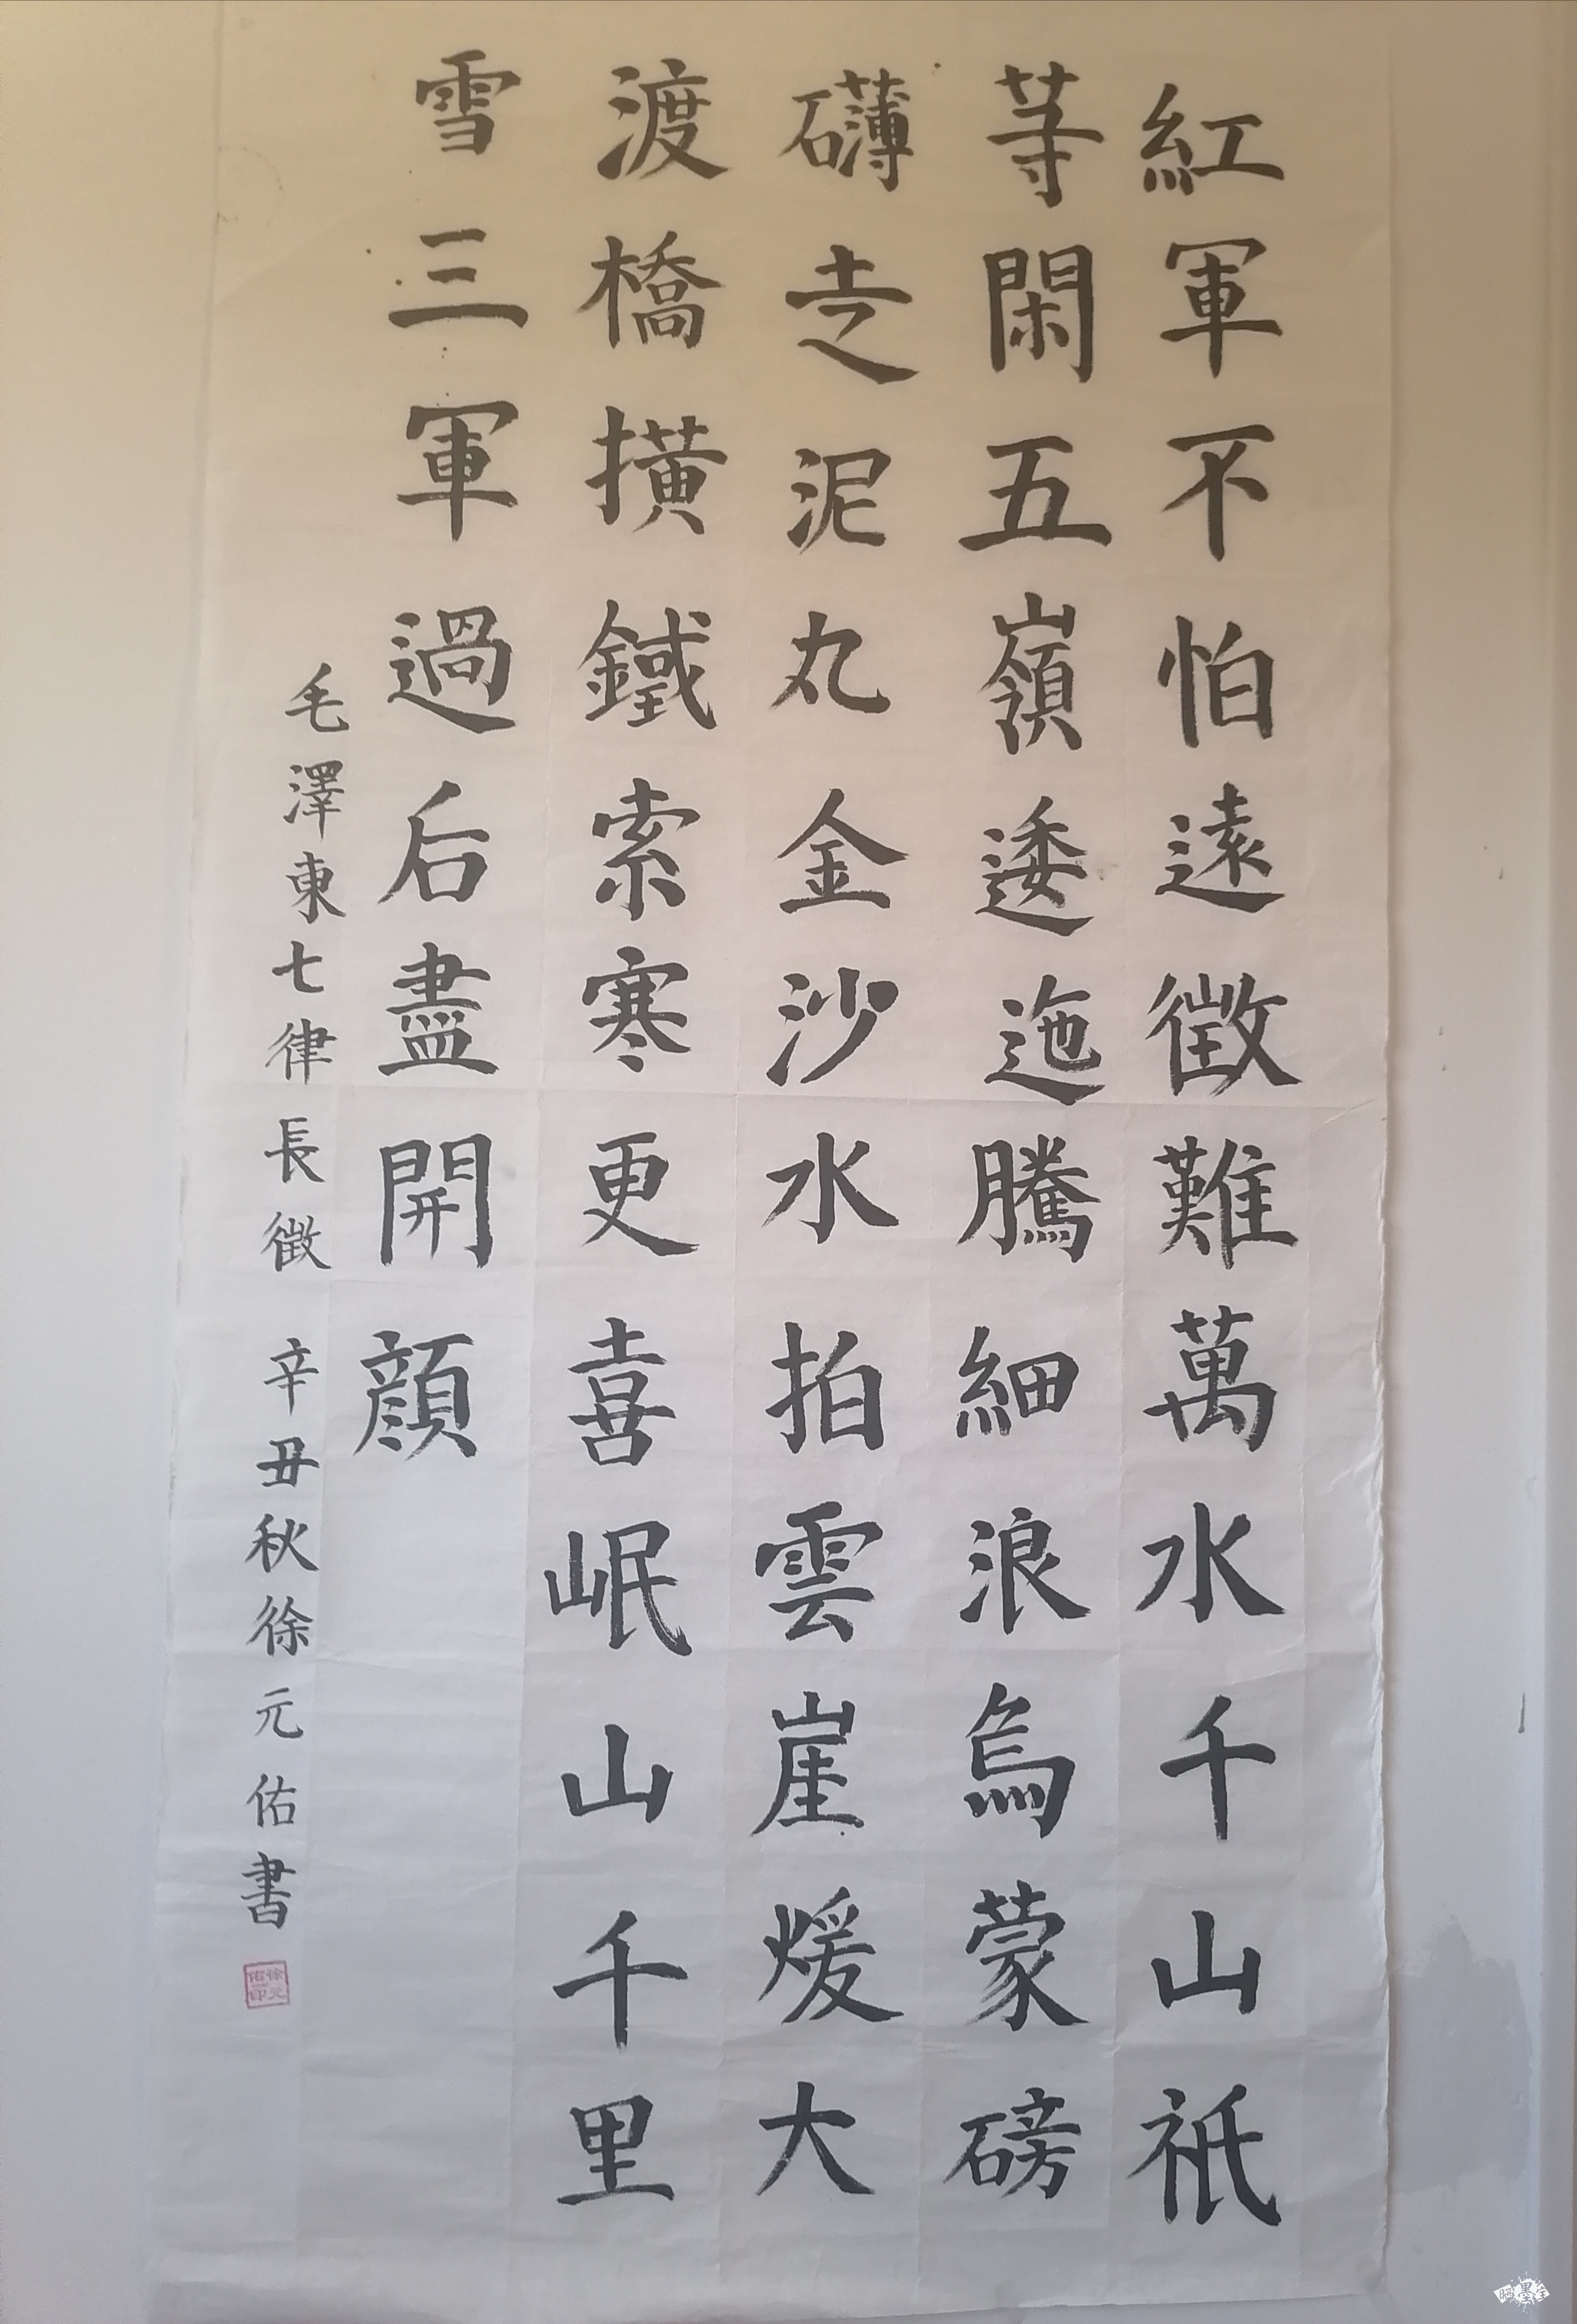 紅軍不怕遠徵難萬水千山祇
等閑五嶺逶迤騰細浪烏蒙磅
礴走泥丸金沙水拍雲崖煖大
渡橋撗鐵索寒更喜岷山千里
雪三軍過后盡開顔
毛澤東七律長徵 辛丑秋徐元佑書
徐元佑印
晒墨宝